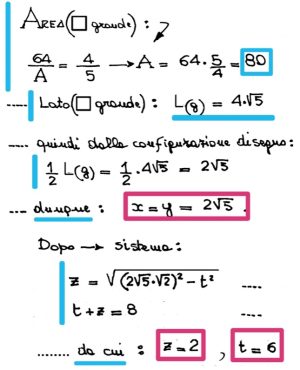 AREA(□ grande) :
64/A = 4/5 → A = 64·5/4 = 80
.... Lato(□ grande) : L(g) = 4·√5
... quindi dalla configurazione disegno:
1/2 L(g) = 1/2 · 4√5 = 2√5
... dunque : x = y = 2√5 .
Dopo → sistema :
z = √((2√5·√2)² - t²) ....
t + z = 8 ....
........ da cui : z = 2 , t = 6